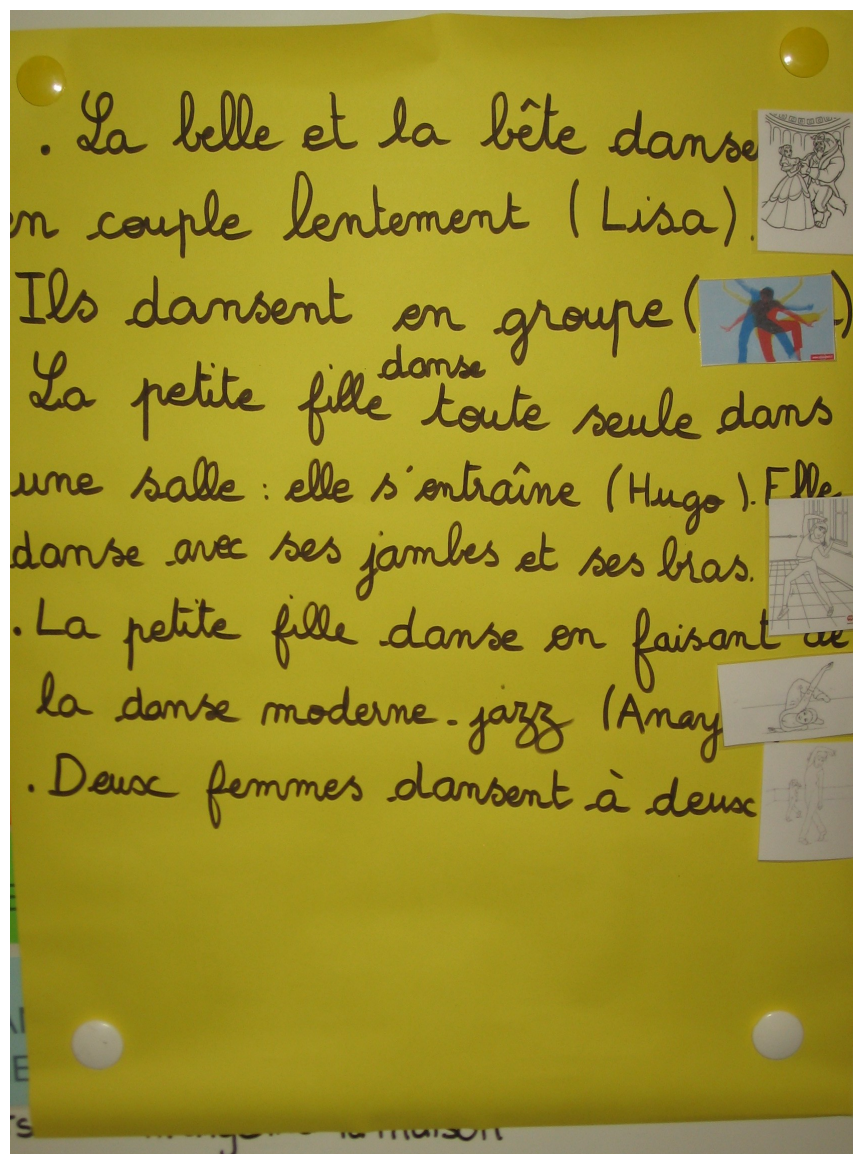 . La belle et la bête danse
en couple lentement (Lisa).
Ils dansent en groupe ( )
danse
La petite fille toute seule dans
une salle : elle s'entraîne (Hugo). Elle
danse avec ses jambes et ses bras.
. La petite fille danse en faisant de
la danse moderne-jazz (Anay
. Deux femmes dansent à deux
la maison